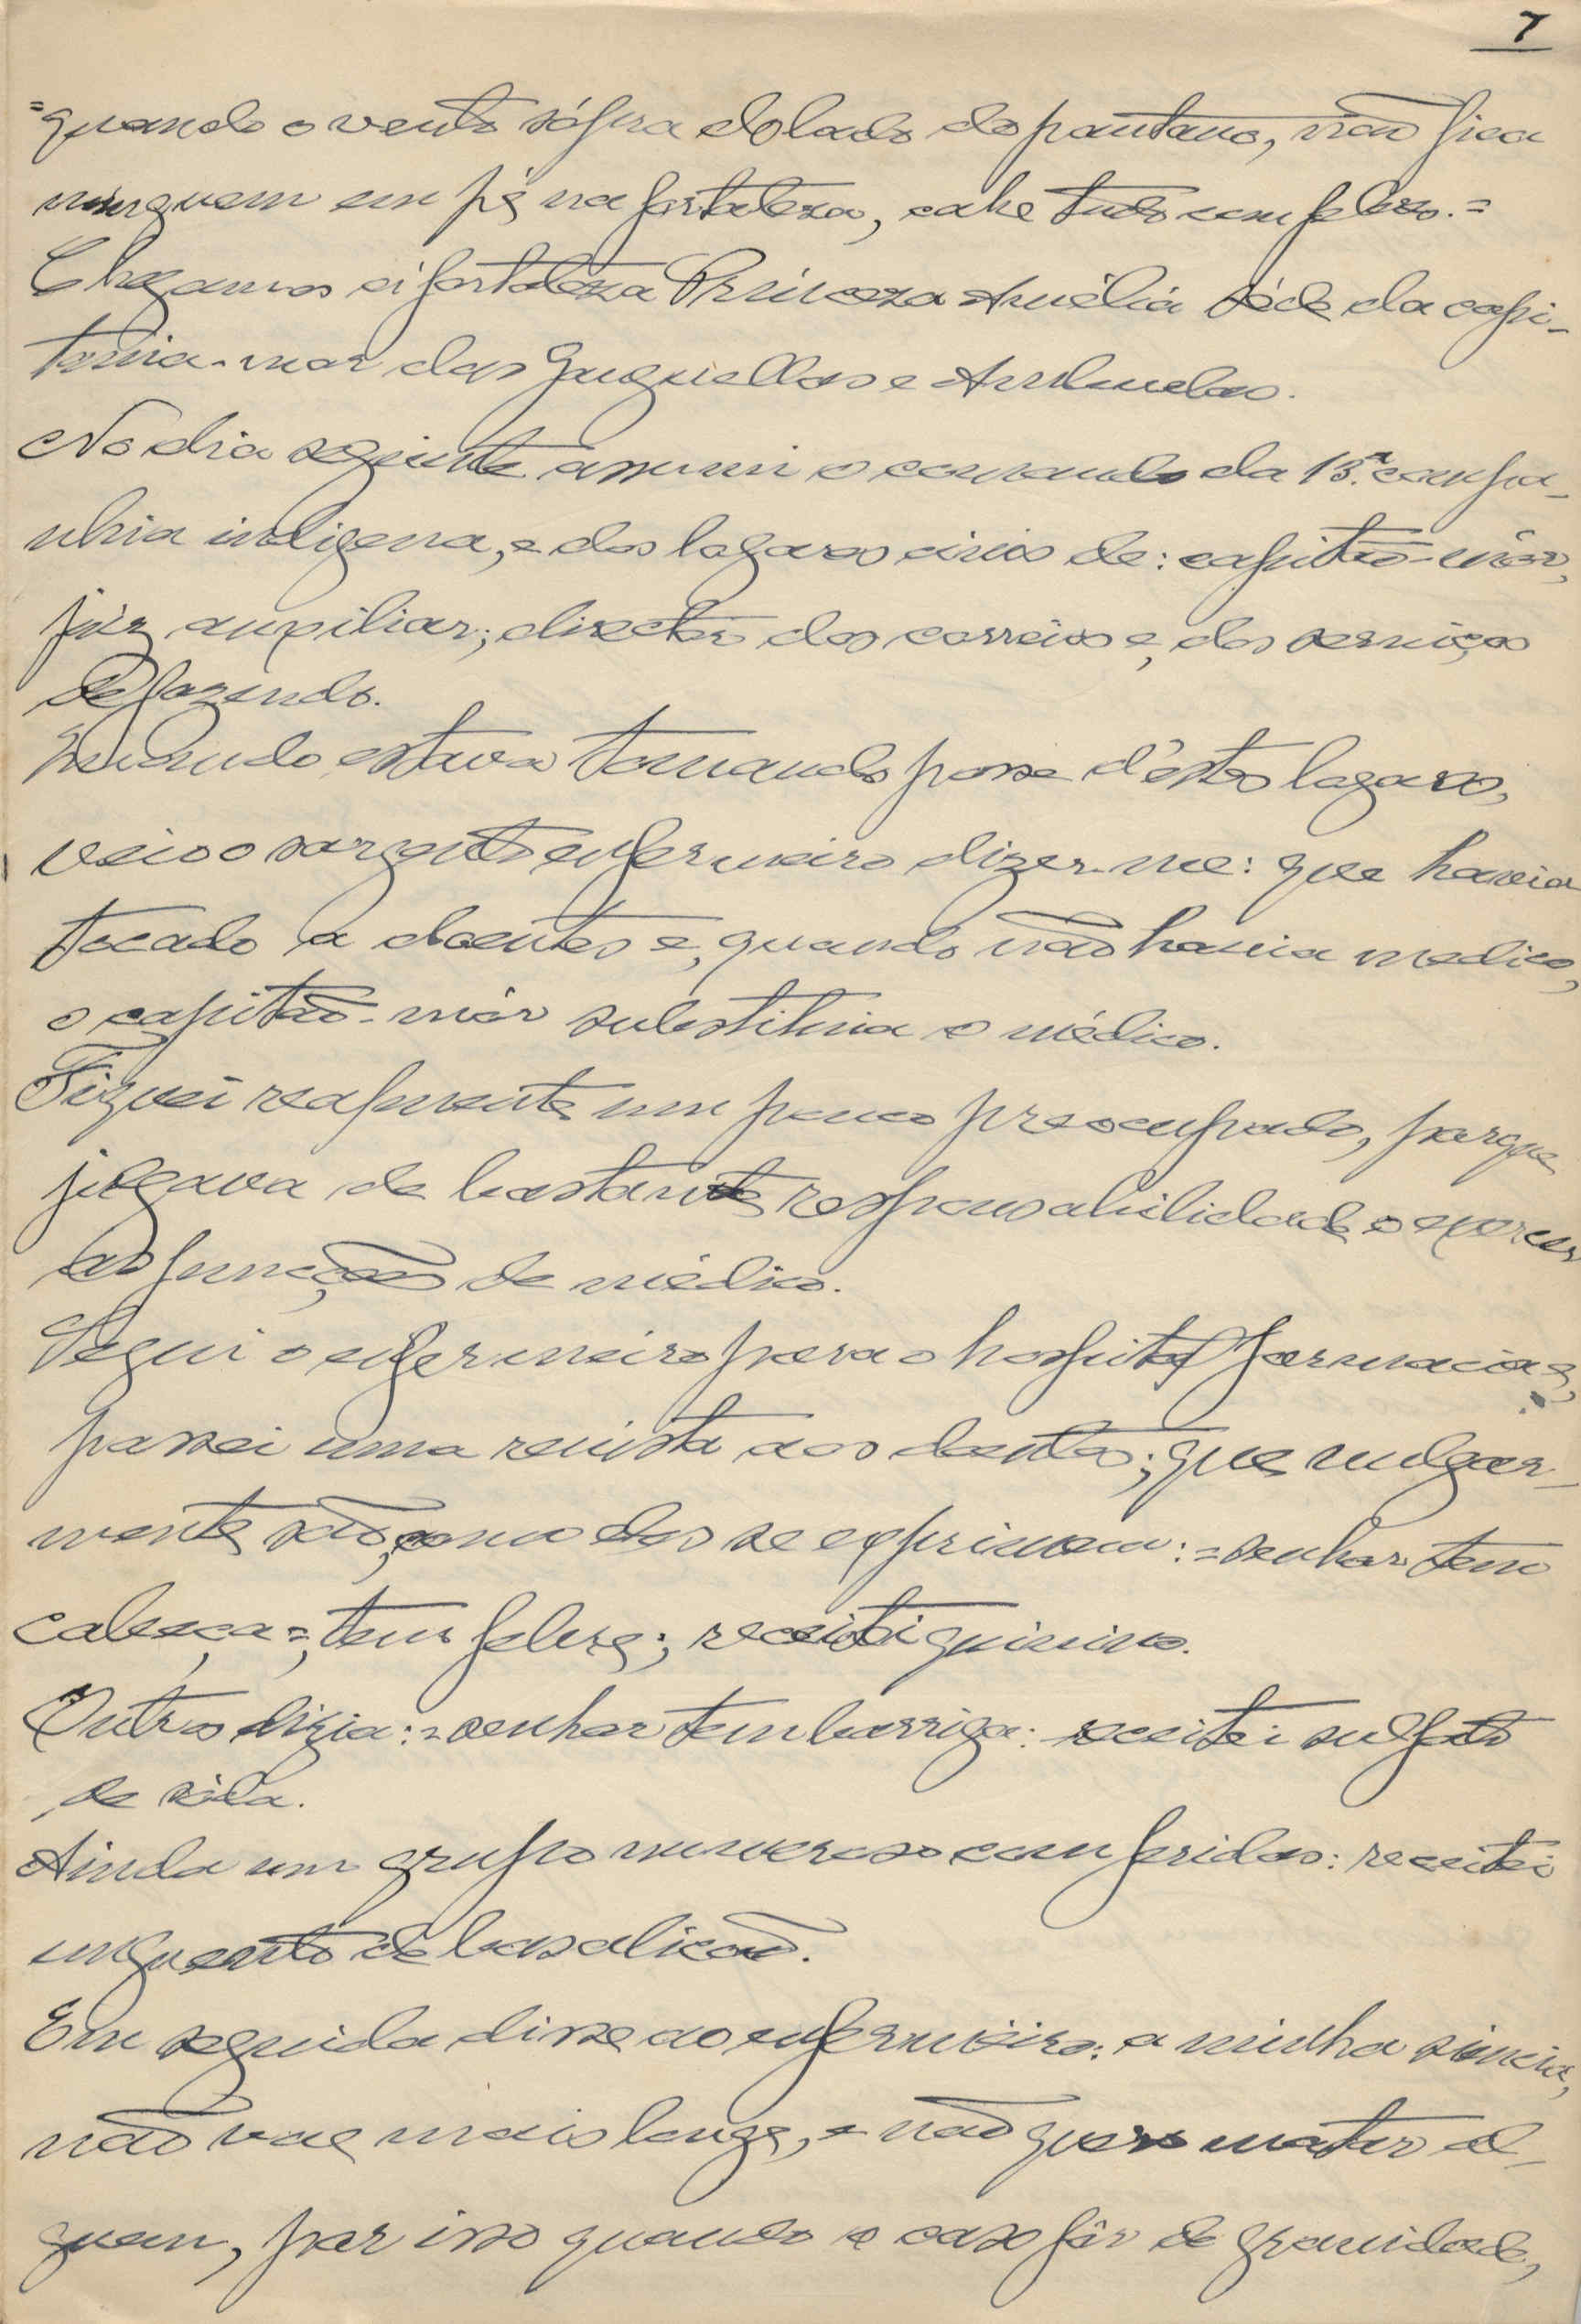 7
=quando o vento sópra do lado do pantano, não fica
ninguem em pé na fortaleza, cahe tudo com febre.=
Chegamos á fortaleza Princeza Amélia séde da capi-
tania-mor dos Ganguellas e Ambuelas.
No dia seguinte assumi o comando da 15.ª compa-
nhia indigena, e dos logares civis de: capitão-mór,
juiz auxiliar; director dos correios e, dos serviços
de fazenda.
Quando estava tomando posse d'estes logares,
veio o sargento enfermeiro dizer-me: que havia
tocado a doentes e, quando não havia medico,
o capitão-mór substituia o médico.
Fiquei realmente um pouco preocupado, porque
julgava de bastante responsabilidade o exercer
as funções de médico.
Segui o enfermeiro para o hospital farmacia e,
passei uma revista aos doentes; que vulgar-
mente são, como eles se exprimem: =senhor tem
cabeça=; tem febre; receitei quinino.
Outro dizia: =senhor tem barriga: receitei sulfato
de sóda.
Ainda um grupo numeroso com feridas: receitei
unguento de basalicão.
Em seguida disse ao enfermeiro: a minha siencia,
não vae mais longe, e não quero matar al-
guem, por isso quando o caso fôr de gravidade,